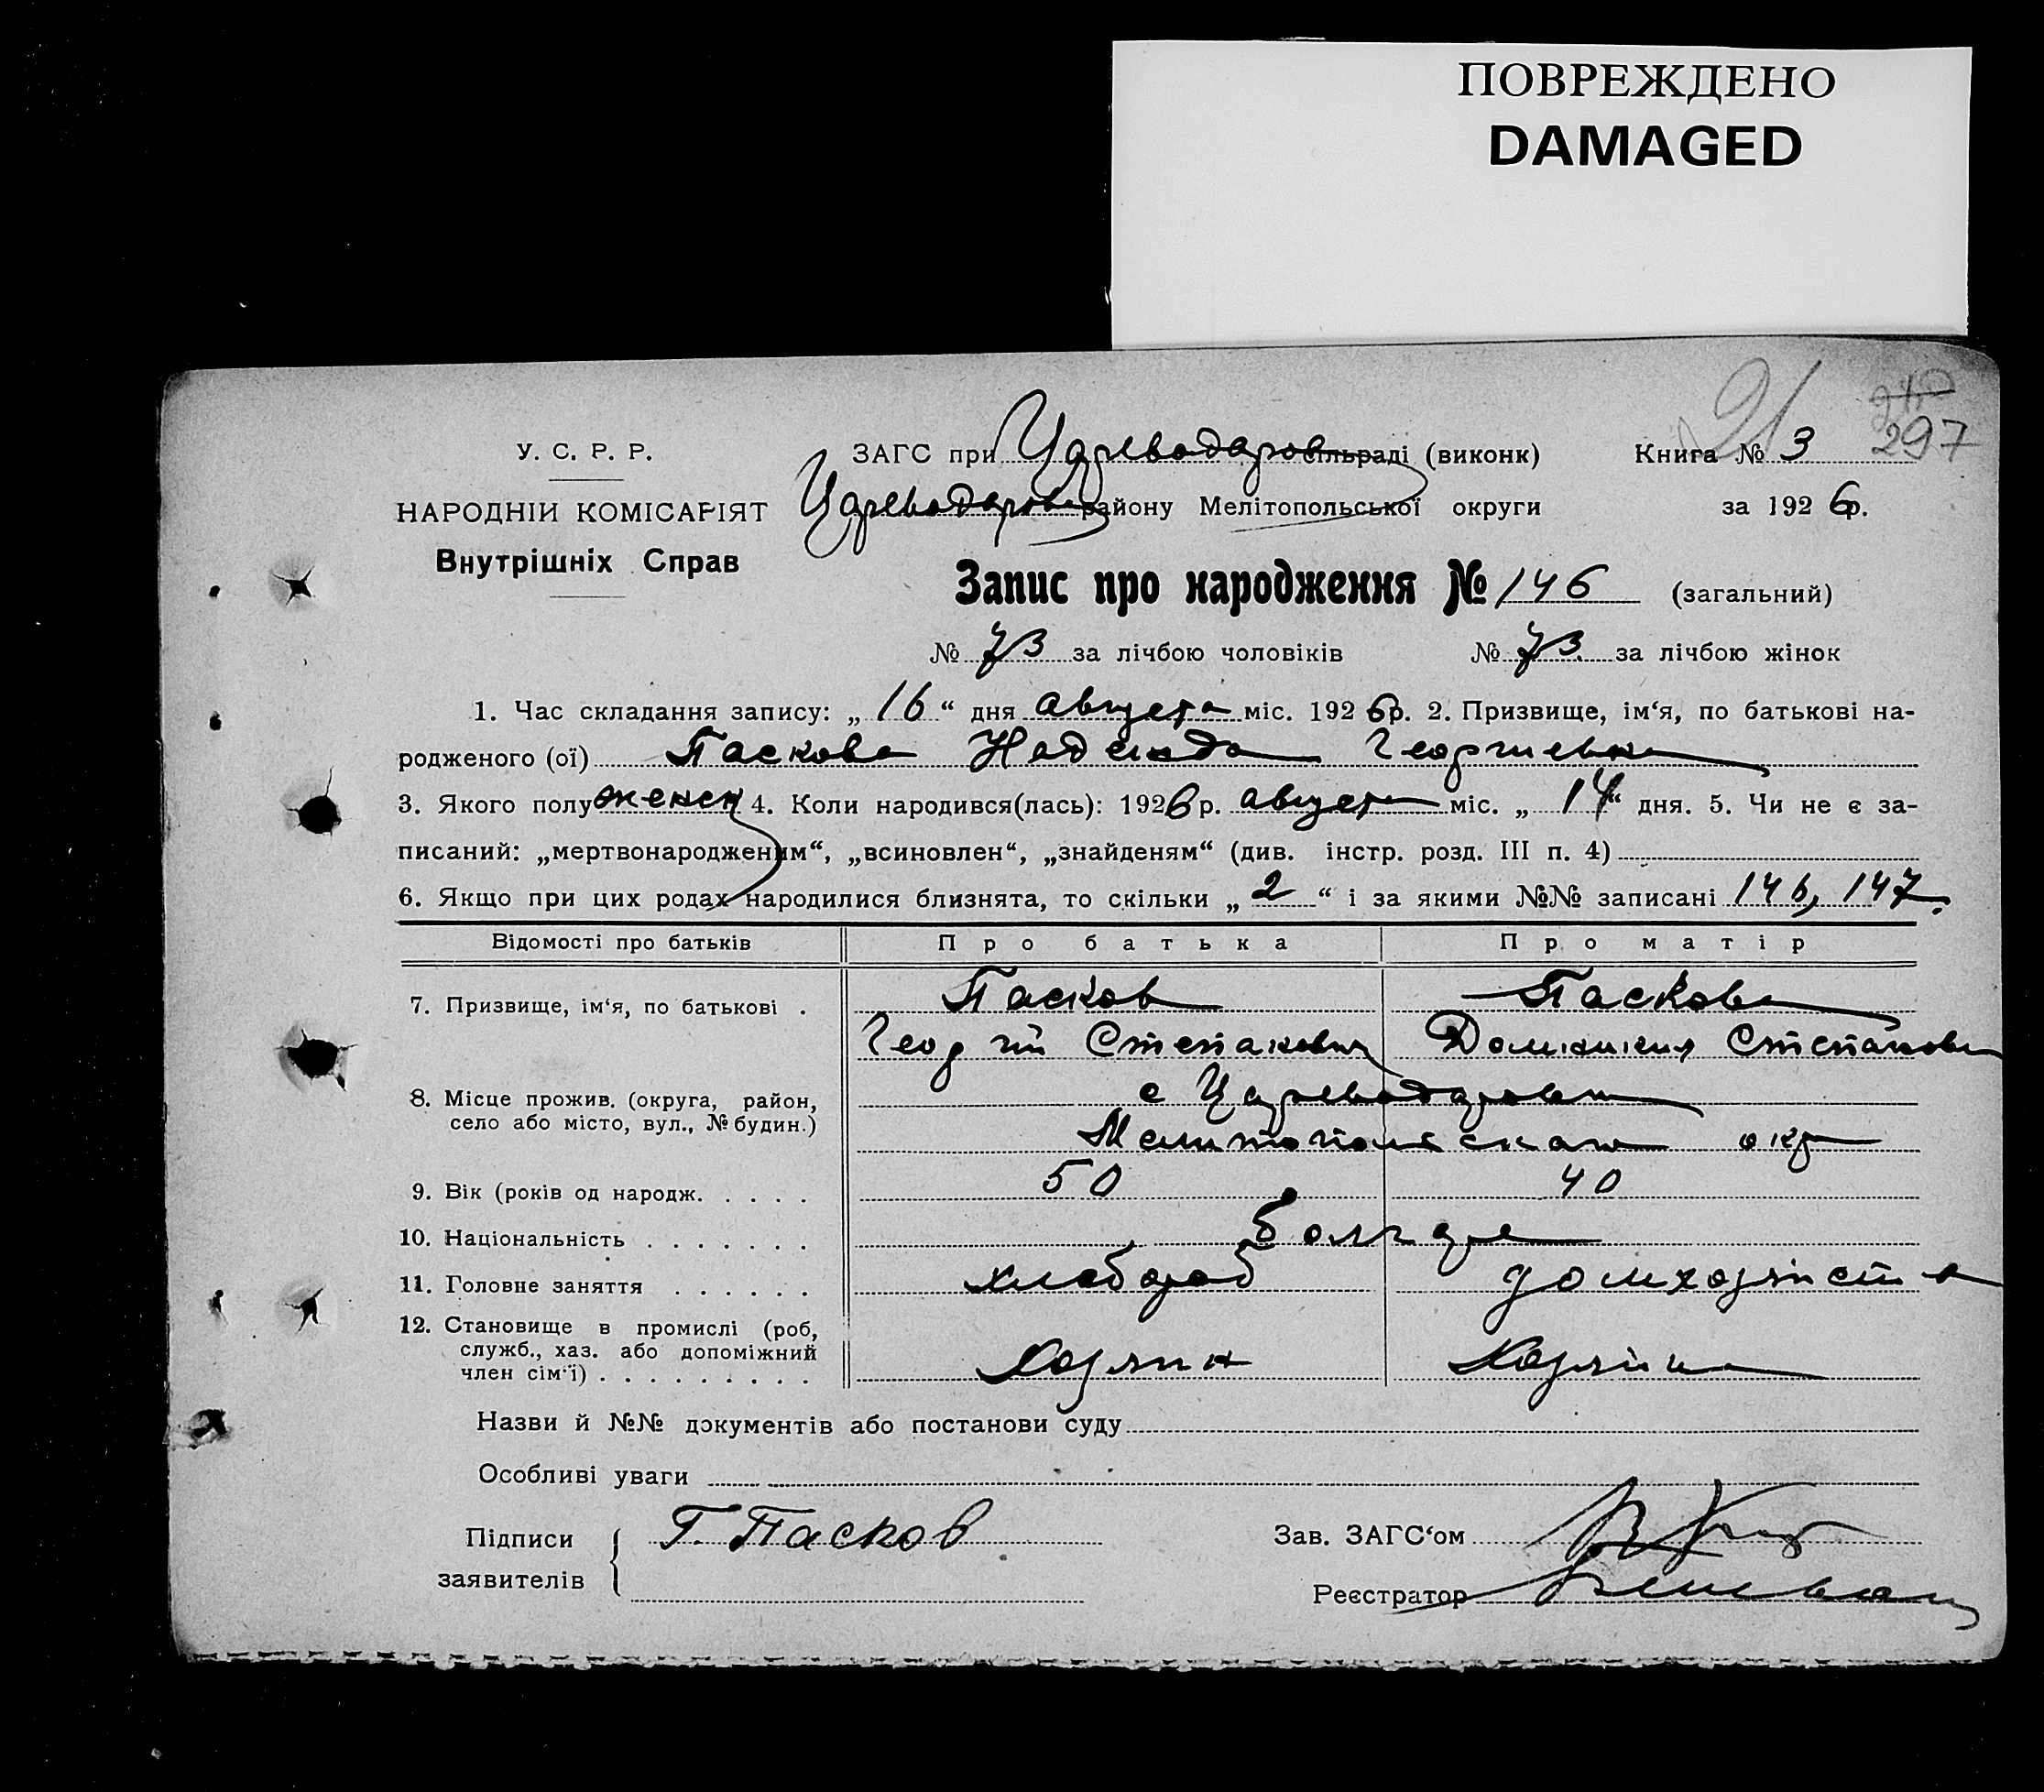 ПОВРЕЖДЕНО
DAMAGED
21 297
У. С. Р. Р. ЗАГС при Цареводаров сільраді (виконк) Книга № 3
НАРОДНІЙ КОМІСАРІЯТ Цареводаров району Мелітопольської округи за 1926р.
Внутрішніх Справ
Запис про народження № 146 (загальний)
№ 73 за лічбою чоловіків № 73 за лічбою жінок
1. Час складання запису: „16“ дня августа міс. 1926р. 2. Призвище, ім‘я, по батькові на-
родженого (ої) Паскова Надежда Георгиевна
3. Якого полу женск 4. Коли народився(лась): 1926р. августа міс. „14“ дня. 5. Чи не є за-
писаний: „мертвонародженим“, „всиновлен“, „знайденям“ (див. інстр. розд. III п. 4)
6. Якщо при цих родах народилися близнята, то скільки „2“ і за якими №№ записані 146, 147.
Відомості про батьків Про батька Про матір
7. Призвище, ім‘я, по батькові . Пасков Паскова
Георгий Степанович Домникия Степанов
8. Місце прожив. (округа, район, с Цареводаровка
село або місто, вул., № будин.) Мелитопольская окр
9. Вік (років од народж. . . . . 50 40
10. Національність . . . . . . . болгаре
11. Головне заняття . . . . . . хлебороб домхозяйств
12. Становище в промислі (роб,
служб., хаз. або допоміжний Хозяин Хозяйка
член сім‘ї) . . . . . . . . .
Назви й №№ документів або постанови суду
Особливі уваги
Підписи Г. Пасков Зав. ЗАГС‘ом
заявителів Реєстратор